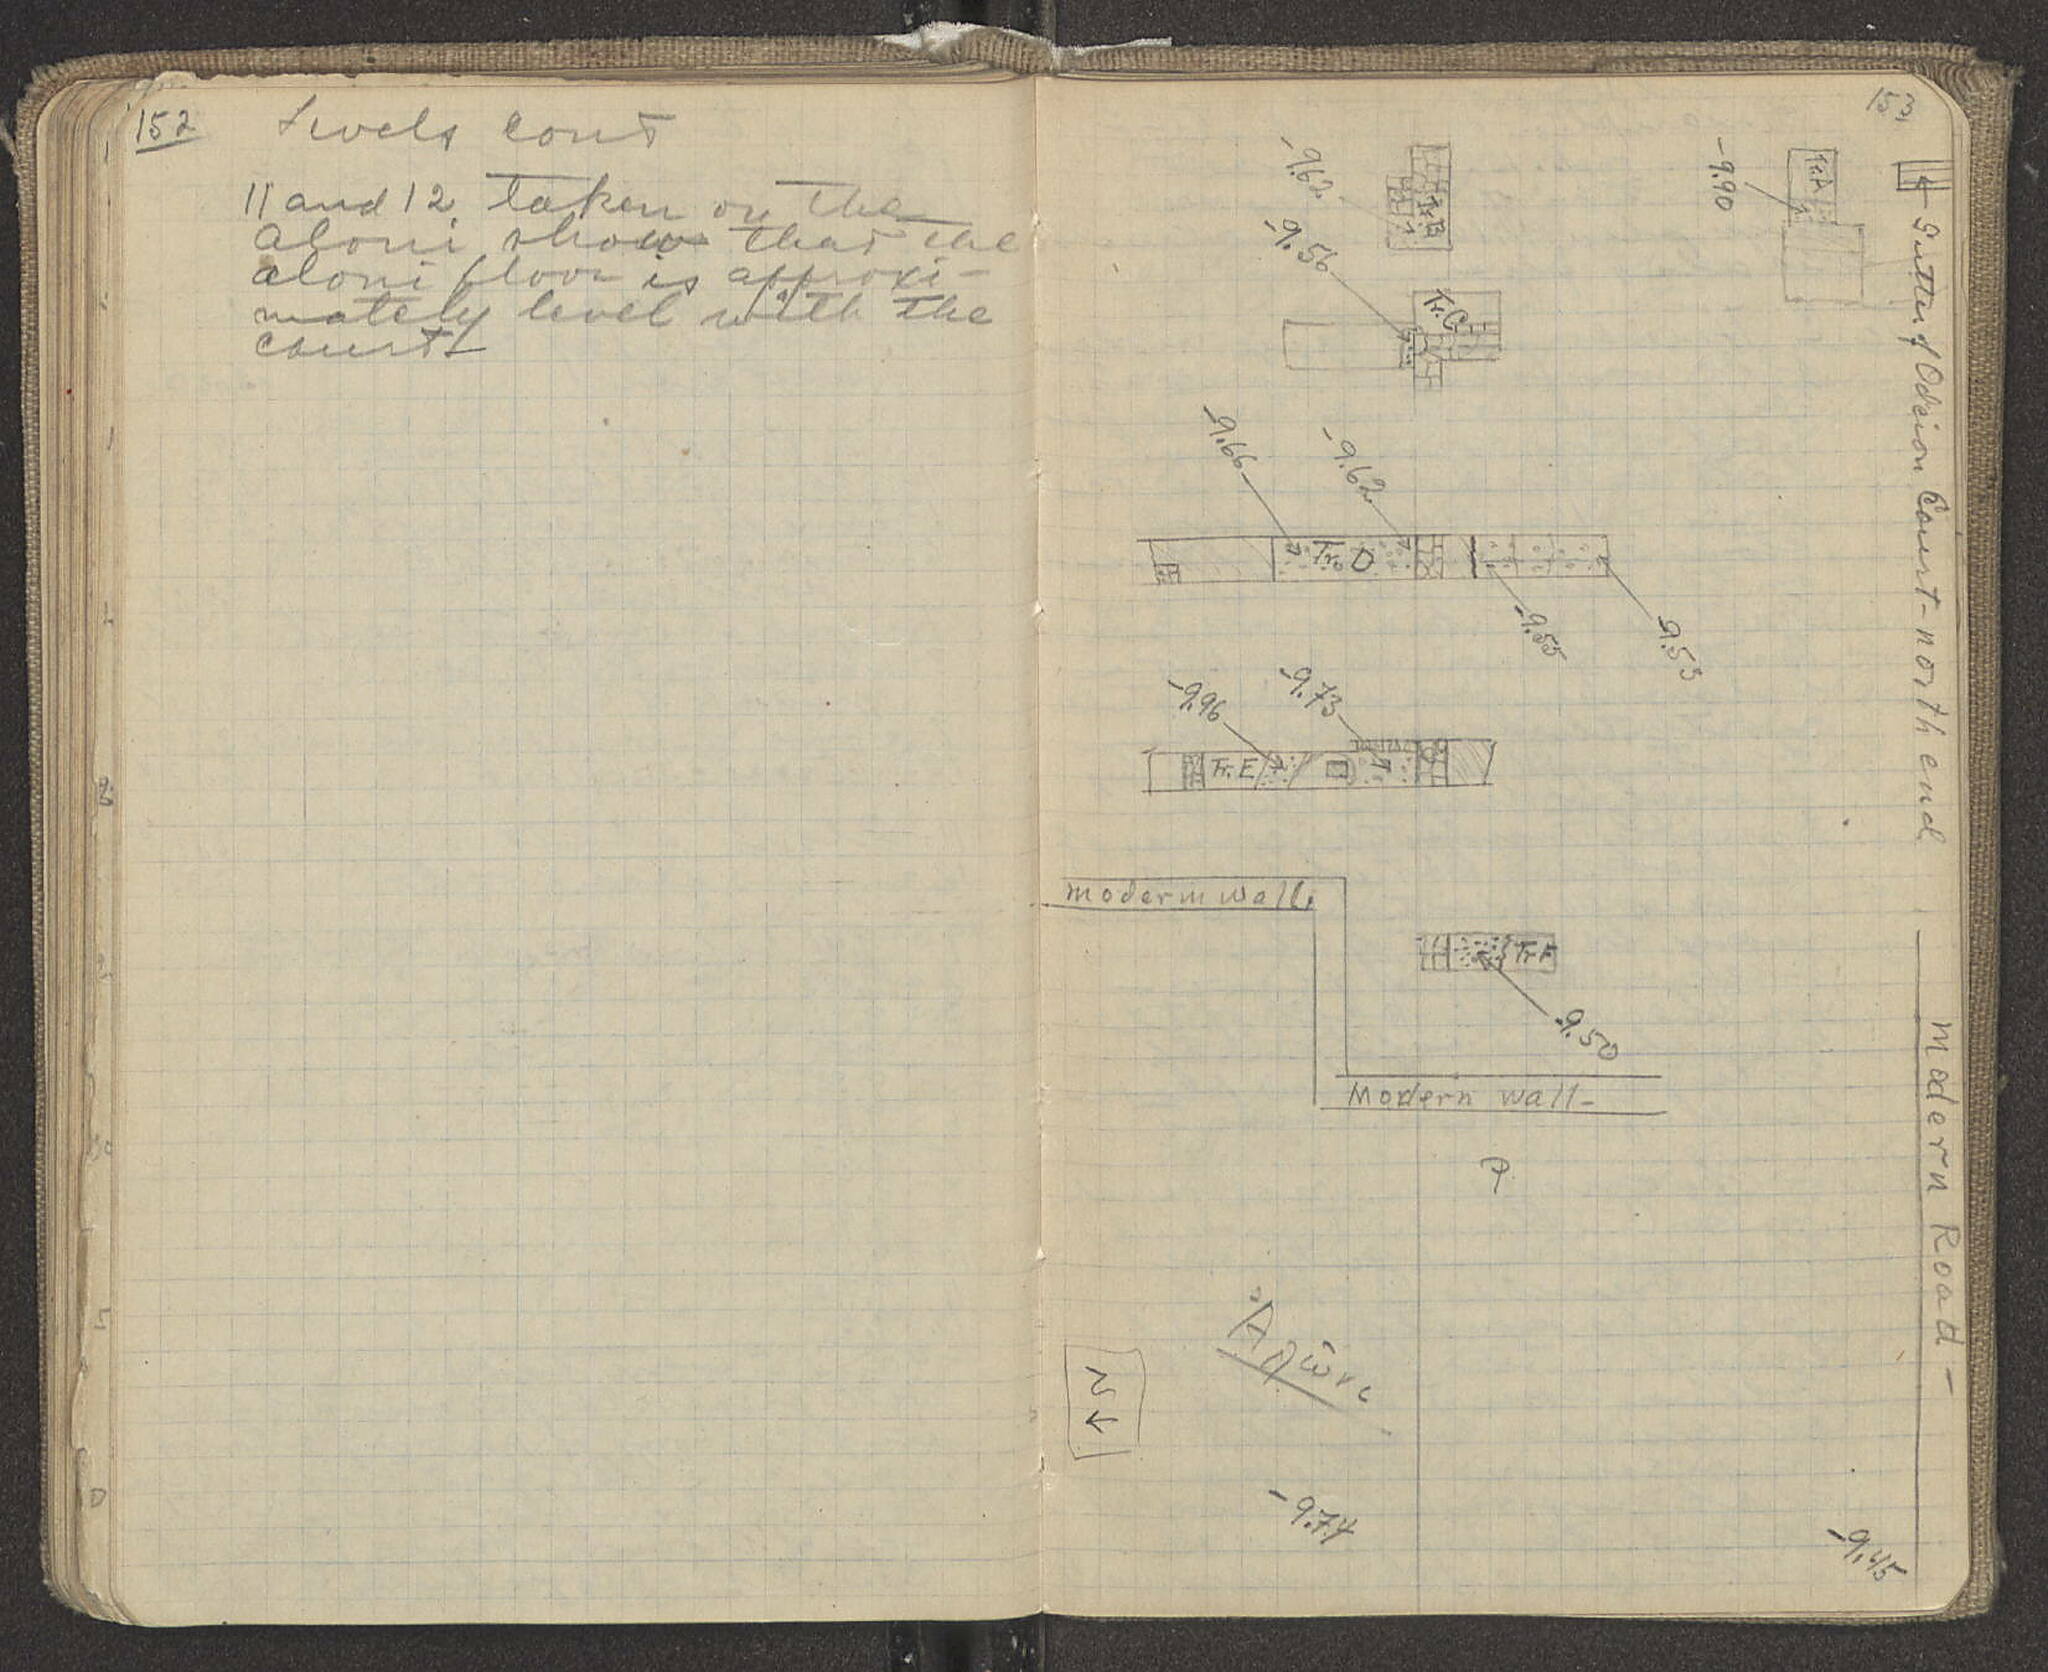 152 Levels cont
11 and 12 taken on the
aloni show that the
aloni floor is approxi-
mately level with the
court
153
-9.62
Tr.B
-9.56
Tr.C
-9.90
Tr.A
Gutter of Odeion Court - north end
-9.66
-9.62
Tr. D
-9.55
-9.53
-9.96
-9.73
Tr.E
modern wall
Tr.F
-9.50
Modern wall-
Modern Road -
Ἁλῶνι
N
-9.74
-9.45